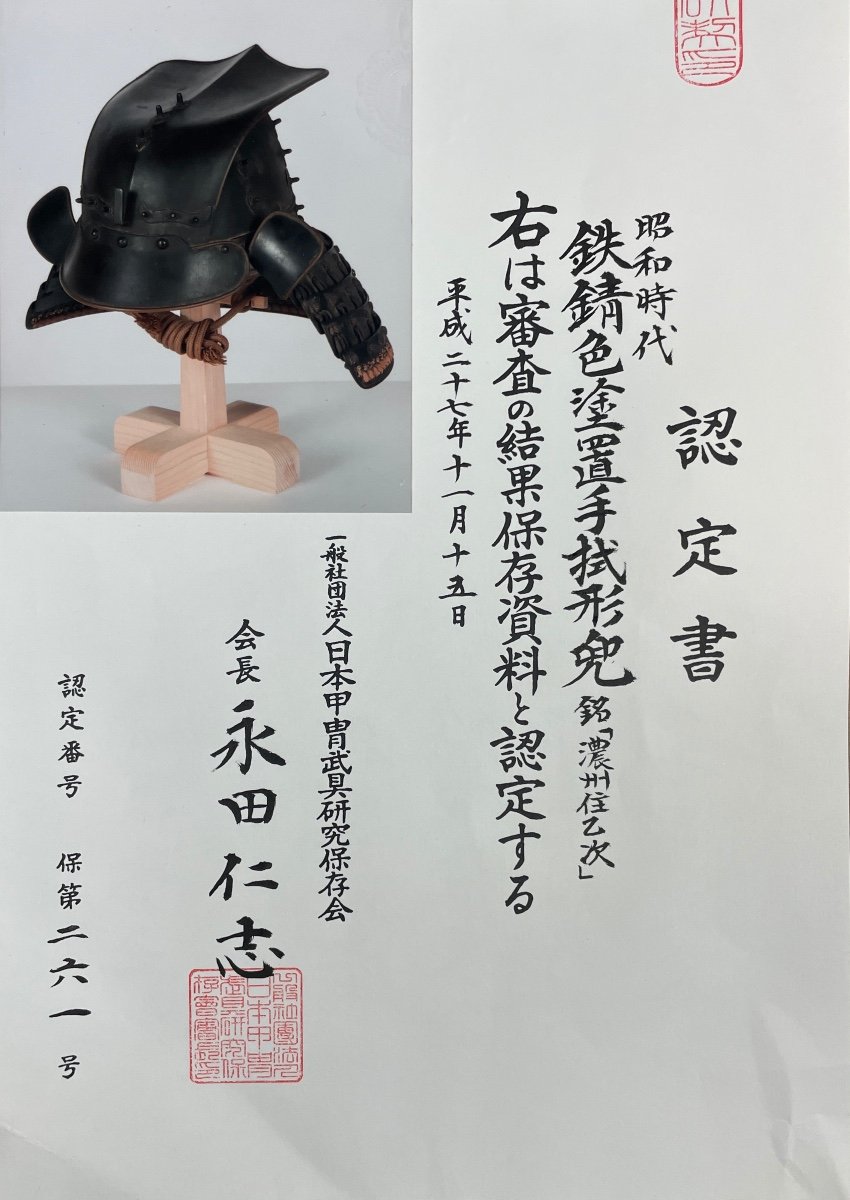 認定書
昭和時代
鉄錆色塗置手拭形兜 銘「濃州住乙次」
右は審査の結果保存資料と認定する
平成二十七年十一月十五日
一般社団法人日本甲冑武具研究保存会
会長 永田仁志
認定番号 保第二六一号